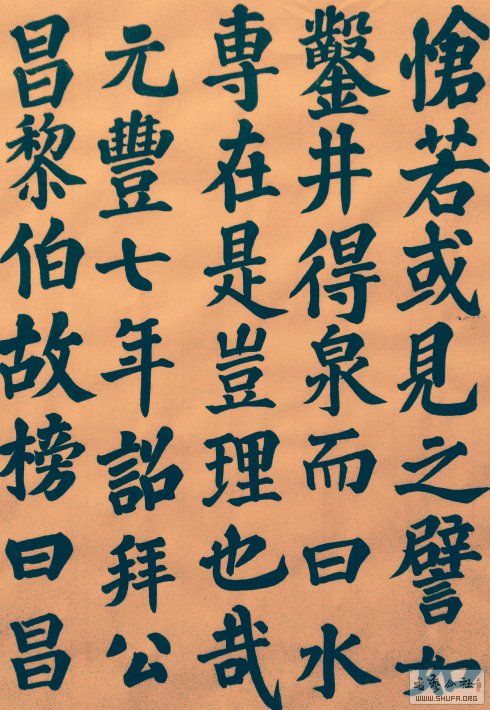 愴若或見之譬如
鑿井得泉而曰水
専在是豈理也哉
元豐七年詔拜公
昌黎伯故榜曰昌
WWW.SHUFA.ORG